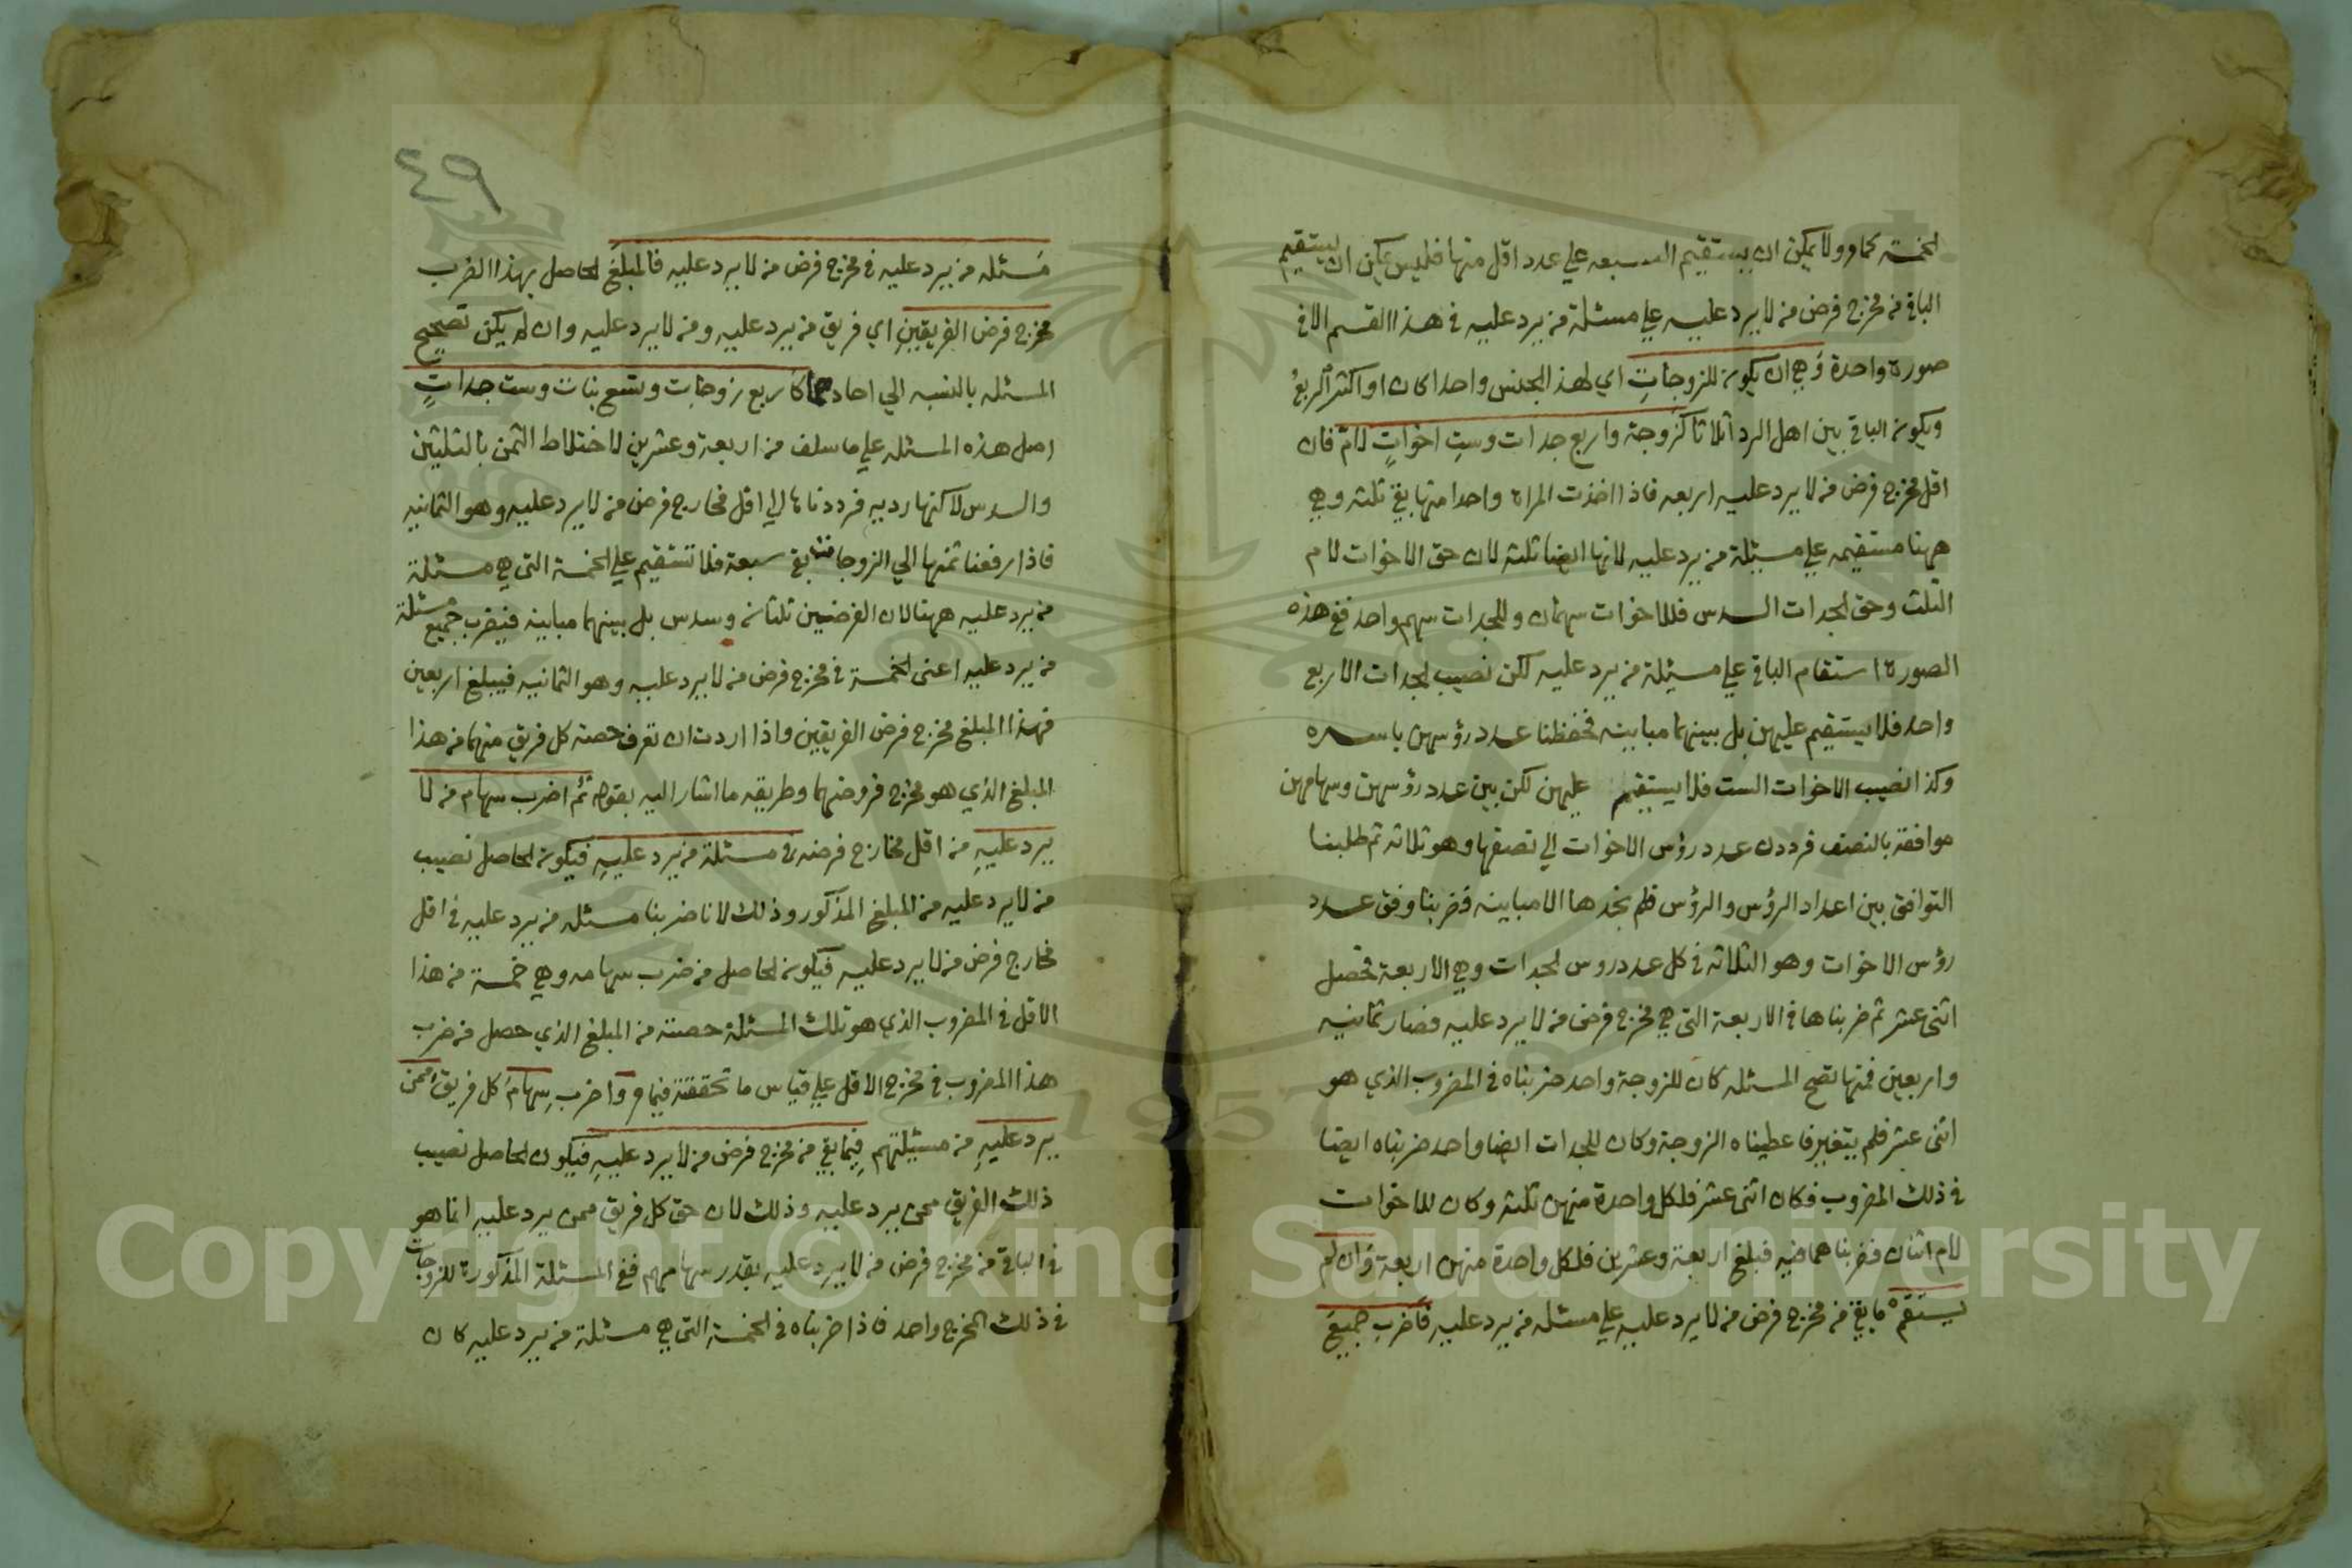 الخمسة كما مر ولا يمكن ان يستقيم السبعه علي عدد اقل منها فليس يمكن ان يستقيم
الباقي من مخرج فرض من لا يرد عليه علي مسئلة من يرد عليه في هذا القسم الا في
صورة واحدة وهي ان يكون للزوجات اي لهذ الجنس واحدا كان او اكثر الربع
ويكون الباقي بين اهل الرد اثلاثا كزوجة واربع جدات وست اخوات لام فان
اقل مخرج فرض من لا يرد عليه اربعه فاذا اخذت المراة واحدا منها بقي ثلثه وهي
ههنا مستقيمه علي مسئلة من يرد عليه لانها ايضا ثلثه لان حق الاخوات لام
الثلث وحق الجدات السدس فللاخوات سهمان وللجدات سهم واحد ففي هذه
الصورة استقام الباقي علي مسئلة من يرد عليه لكن نصيب الجدات الاربع
واحد فلا يستقيم عليهن بل بينهما مباينه فحفظنا عدد رؤسهن باسره
وكذا نصيب الاخوات الست فلا يستقيم عليهن لكن بين عدد رؤسهن وسهامهن
موافقة بالنصف فرددنا عدد رؤس الاخوات الي نصفها وهو ثلاثه ثم طلبنا
التوافق بين اعداد الرؤس والرؤس فلم نجدها الا مباينه فضربنا وفق عدد
رؤس الاخوات وهو الثلاثه في كل عدد روس الجدات وهي الاربعة تحصل
اثنى عشر ثم ضربناها في الاربعة التي هي مخرج فرض من لا يرد عليه فصار ثمانيه
واربعين فمنها تصح المسئله كان للزوجة واحد ضربناه في المضروب الذي هو
اثنى عشر فلم يتغير فاعطيناه الزوجة وكان للجدات ايضا واحد ضربناه ايضا
في ذلك المضروب فكان اثنى عشر فلكل واحدة منهن ثلثه وكان للاخوات
لام اثنان فضربناهما فيه فبلغ اربعة وعشرين فلكل واحدة منهن اربعة وان لم
يستقم ما بقي من مخرج فرض من لا يرد عليه علي مسئله من يرد عليه فاضرب جميع
٤٩
مسئله من يرد عليه في مخرج فرض من لا يرد عليه فالمبلغ الحاصل بهذا الضرب
مخرج فرض الفريقين اي فريق من يرد عليه ومن لا يرد عليه وان لم يكن تصحيح
المسئله بالنسبه الي احادهما كاربع زوجات وتسع بنات وست جدات
اصل هذه المسئله علي ما سلف من اربعة وعشرين لاختلاط الثمن بالثلثين
والسدس لاكنها رديه فرددناها الي اقل مخارج فرض من لا يرد عليه وهو الثمانيه
فاذا رفعنا ثمنها الي الزوجات بقي سبعة فلا تستقيم علي الخمسة التي هي مسئلة
من يرد عليه ههنا لان الفرضين ثلثان وسدس بل بينهما مباينه فيضرب جميع مسئلة
من يرد عليه اعنى الخمسة في مخرج فرض من لا يرد عليه وهو الثمانيه فيبلغ اربعين
فهذا المبلغ مخرج فرض الفريقين واذا اردت ان تعرف حصة كل فريق منهما من هذا
المبلغ الذي هو مخرج فروضهما وطريقه ما اشار اليه بقوله ثم اضرب سهام من لا
يرد عليه من اقل مخارج فرضه في مسئلة من يرد عليه فيكون الحاصل نصيب
من لا يرد عليه من المبلغ المذكور وذلك لانا ضربنا مسئله من يرد عليه في اقل
مخارج فرض من لا يرد عليه فيكون الحاصل من ضرب سهامه وهي خمسة من هذا
الاقل في المضروب الذي هو تلك المسئلة حصته من المبلغ الذي حصل من ضرب
هذا المضروب في مخرج الاقل علي قياس ما تحققته فيما مر واضرب سهام كل فريق ممن
يرد عليه من مسئلتهم فيما بقي من مخرج فرض من لا يرد عليه فيكون الحاصل نصيب
ذلك الفريق ممن يرد عليه وذلك لان حق كل فريق ممن يرد عليه انما هو
في الباقي من مخرج فرض من لا يرد عليه بقدر سهامهم ففي المسئلة المذكورة للزوجات
في ذلك المخرج واحد فاذا ضربناه في الخمسة التي هي مسئلة من يرد عليه كان
1957
Copyright © King Saud University